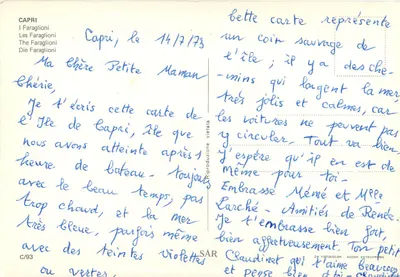 CAPRI
I Faraglioni
Les Faraglioni
The Faraglioni
Die Faraglioni
Capri, le 14/7/73
Ma Chère Petite Maman
Chérie,
Je t'écris cette carte de
l'Ile de Capri, île que
nous avons atteinte après 1
heure de bateau. toujours
avec le beau temps, pas
trop chaud, et la mer
très bleue, parfois même
avec des teintes violettes
ou vertes.
C/93
riproduzione vietata
SAR
Cette carte représente
un coin sauvage de
l'île ; il y a des che-
mins qui longent la mer,
très jolis et calmes, car
les voitures ne peuvent pas
y circuler. Tout va bien.
J'espère qu'il en est de
même pour toi-
Embrasse Mémé et Melle
Larché - Amitiés de Renée.
Je t'embrasse bien fort,
bien affectueusement. Ton petit
Claudinet qui t'aime beaucoup
et pense bien à toi